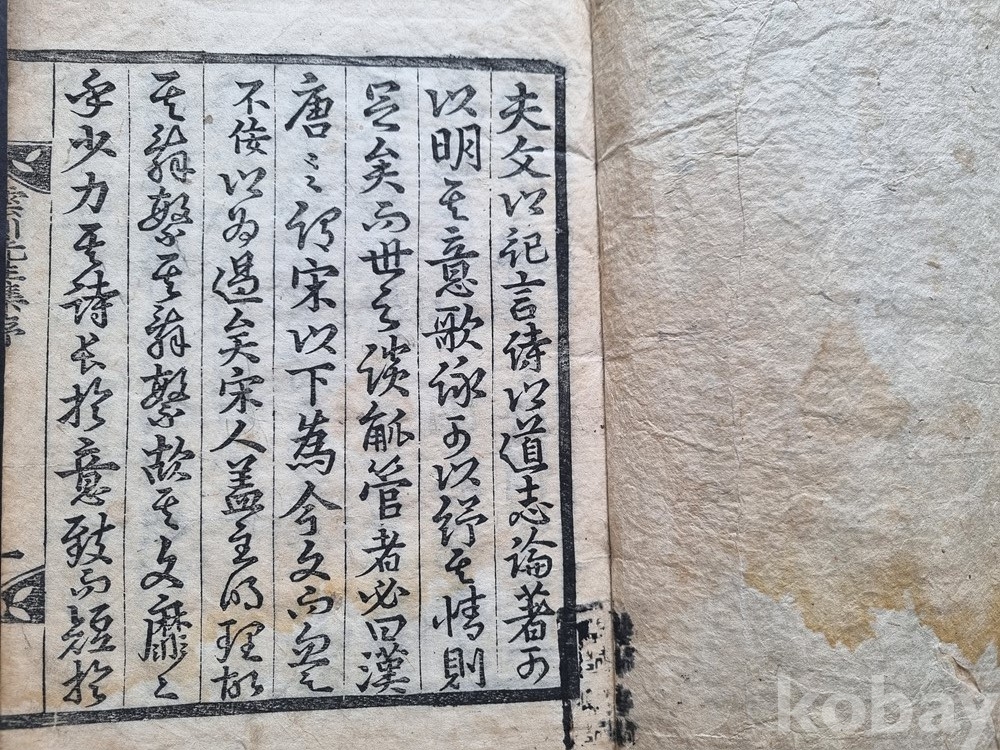 夫文以記言詩以道志論著可
以明其意歌詠可以紓其情則
足矣而世之談觚管者必曰漢
唐謂宋以下為今文而忽之
不佞以為過矣宋人盖主明理故
其辭繁其辭繁故其文靡〻
乎少力其詩長於意致而短於
川先生集序
一
kobay